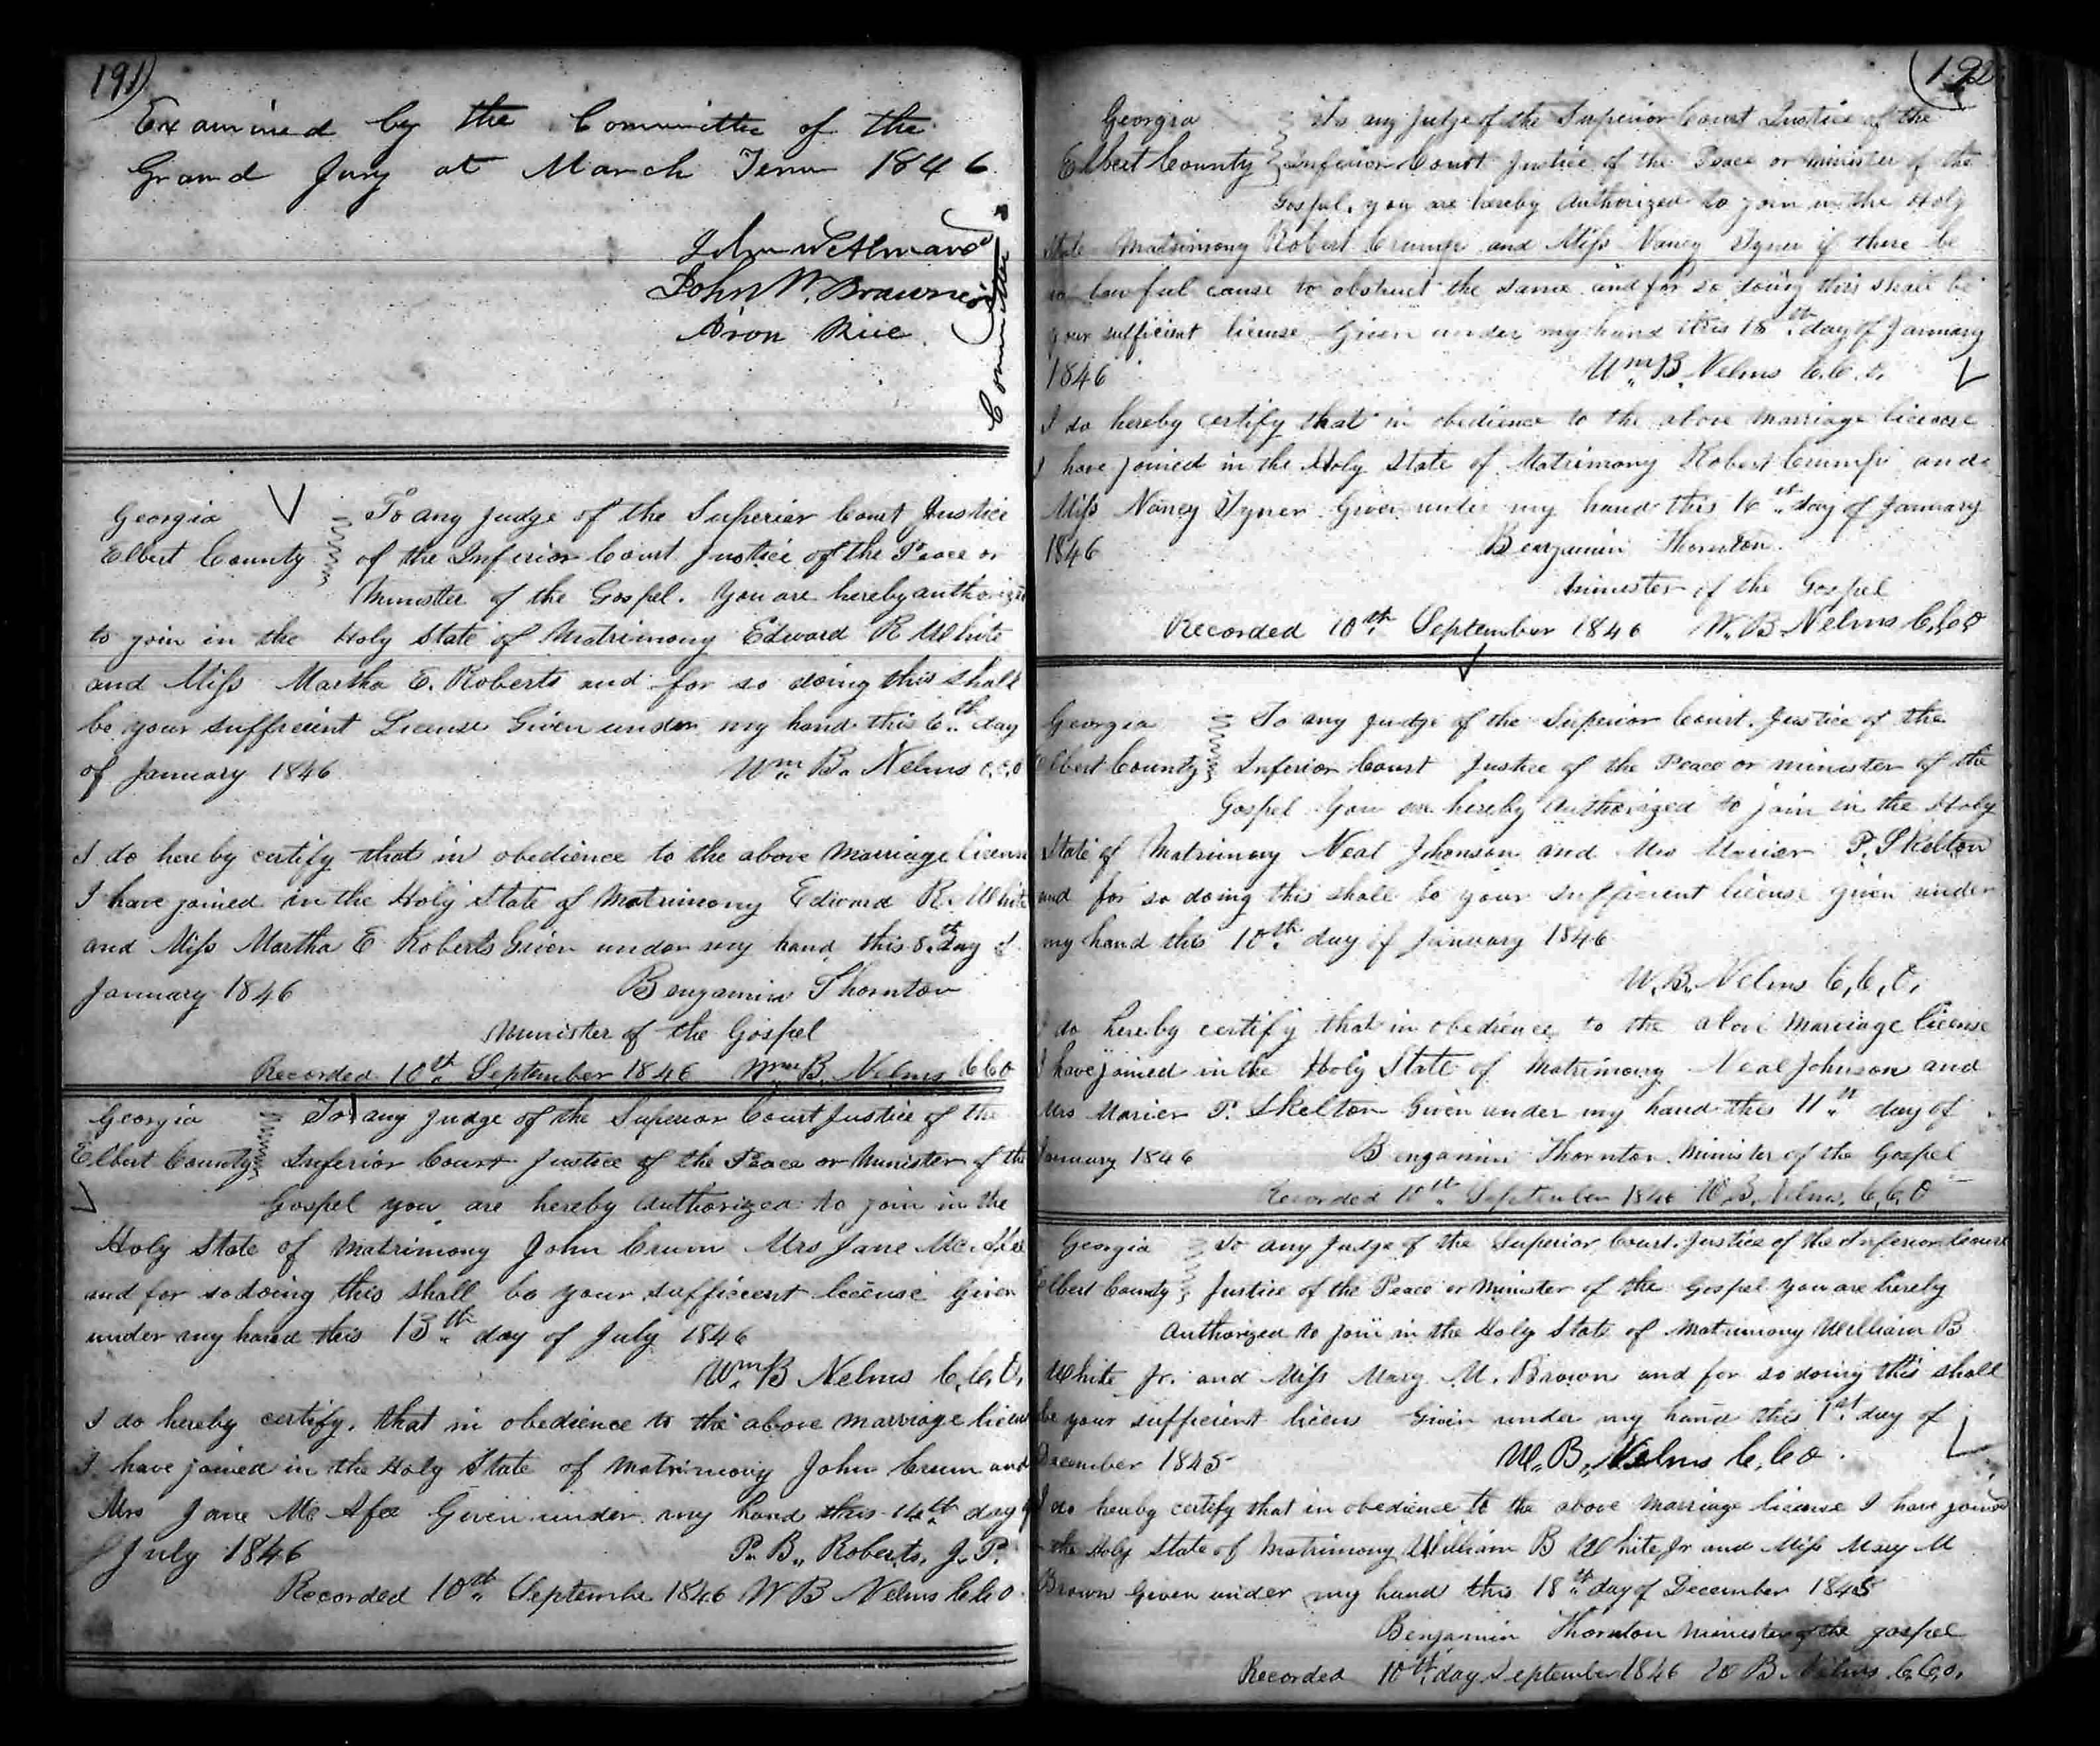 191)
Examined by the Committee of the
Grand Jury at March Term 1846
John
John W. Brawner
Aron Rice
Committee
Georgia To any Judge of the Superior Court Justice
Elbert County of the Inferior Court Justice of the Peace or
Minister of the Gospel. You are hereby authorized
to join in the Holy State of Matrimony Edward R White
and Miss Martha E. Roberts and for so doing this shall
be your sufficient License Given under my hand this 6th day
of January 1846 Wm B. Nelms C.C.O
I do hereby certify that in obedience to the above Marriage License
I have joined in the Holy State of Matrimony Edward R. White
and Miss Martha E Roberts Given under my hand this 8th day of
January 1846 Bengamin Thornton
Minister of the Gospel
Recorded 10th September 1846 Wm B. Nelms C C O
Georgia To any Judge of the Superior Court Justice of the
Elbert County Inferior Court Justice of the Peace or Minister of the
Gospel you are hereby authorized to join in the
Holy State of Matrimony John Crum Mrs Jane Mc Afee
and for so doing this shall be your sufficient license Given
under my hand this 13th day of July 1846
Wm B Nelms C.C.O.
I do hereby certify, that in obedience to the above marriage license
I have joined in the Holy State of Matrimony John Crum and
Mrs Jane Mc Afee Given under my hand this 14th day of
July 1846 P. B. Roberts, J. P.
Recorded 10th Septembe 1846 W B Nelms C C O
(192
Georgia To any Judge of the Superior Court Justice of the
Elbert County Inferior Court Justice of the Peace or minister of the
Gospel, you are hereby authorized to join in the Holy
State Matrimony Robert Crump and Miss Nancy Tyner if there be
no lawful cause to obstruct the same and for so doing this shall be
your sufficient license Given under my hand this 15th day of January
1846 Wm B. Nelms C.C.O.
I do hereby certify that in obedience to the above marriage license
I have joined in the Holy State of Matrimony Robert Crump and
Miss Nancy Tyner Given under my hand this 16th day of January
1846 Benjamin Thornton
minister of the Gospel
Recorded 10th September 1846 W. B Nelms C.C.O
Georgia To any Judge of the Superior Court. Justice of the
Elbert County Inferior Court Justice of the Peace or minister of the
Gospel You are hereby authorized to join in the Holy
State of Matrimony Neal Johnson and Mrs Marier P. Skelton
and for so doing this shall be your sufficient license given under
my hand this 10th day of January 1846
W. B. Nelms C, C, O,
I do hereby certify that in obedience to the above Marriage license
I have joined in the Holy State of Matrimony Neal Johnson and
Mrs Marier P. Skelton Given under my hand this 11th day of
January 1846 Bengamin Thornton Minister of the Gospel
Recorded 10th September 1846 W B. Nelms, C,C,O
Georgia To any Judge of the Superior Court. Justice of the Inferior Court
Elbert County Justice of the Peace or Minister of the Gospel you are hereby
authorized to join in the Holy State of Matrimony William B
White Jr. and Miss Mary M. Brown and for so doing this shall
be your sufficient licens Given under my hand this 1st day of
December 1845 W. B. Nelms C, C O.
I do hereby certify that in obedience to the above marriage license I have joined
in the Holy State of Matrimony William B White Jr and Miss Mary M
Brown Given under my hand this 18th day of December 1845
Benjamin Thornton minister of the gospel
Recorded 10th day September 1846 W B. Nelms C,C,O,